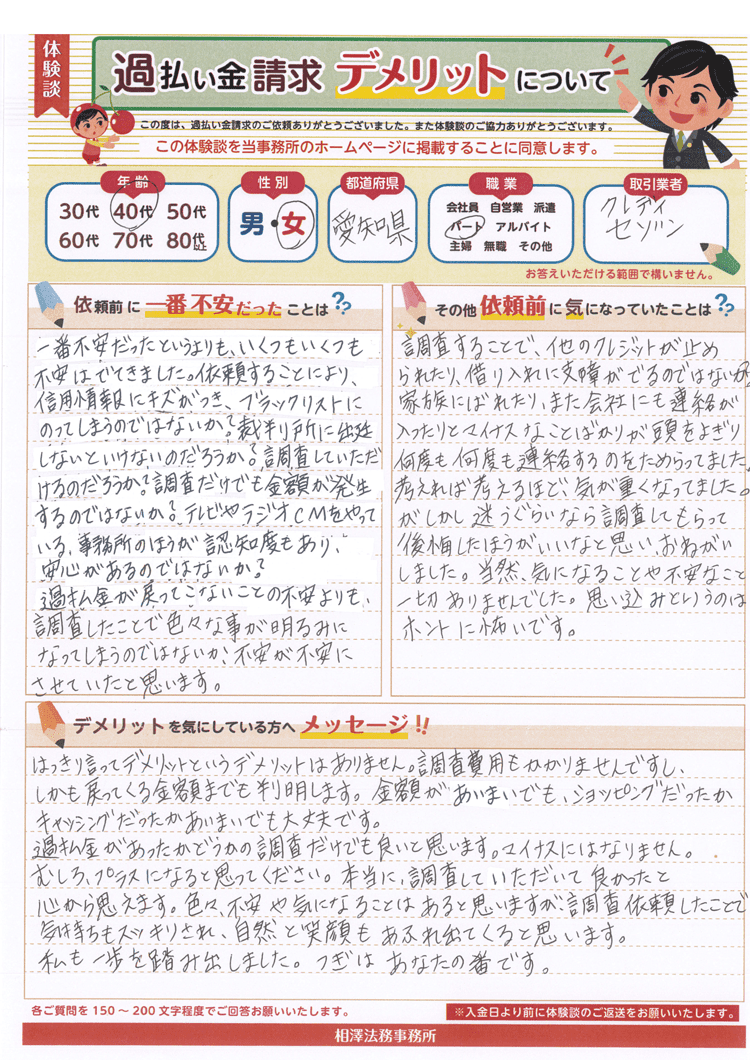 体験談
過払い金請求 デメリットについて
この度は、過払い金請求のご依頼ありがとうございました。また体験談のご協力ありがとうございます。
この体験談を当事務所のホームページに掲載することに同意します。
年齢
30代 40代 50代
60代 70代 80代以上
性別
男・女
都道府県
愛知県
職業
会社員 自営業 派遣
パート アルバイト
主婦 無職 その他
取引業者
クレディ
セゾン
お答えいただける範囲で構いません。
依頼前に一番不安だったことは??
一番不安だったというよりも、いくつもいくつも
不安はでてきました。依頼することにより、
信用情報にキズがつき、ブラックリストに
のってしまうのではないか?裁判所に出廷
しないといけないのだろうか?調査していただ
けるのだろうか?調査だけでも金額が発生
するのではないか?テレビやラジオCMをやって
いる、事務所のほうが認知度もあり、
安心があるのではないか?
過払金が戻ってこないことの不安よりも、
調査したことで色々な事が明るみに
なってしまうのではないか、不安が不安に
させていたと思います。
その他依頼前に気になっていたことは??
調査することで、他のクレジットが止め
られたり、借り入れに支障がでるのではないか?
家族にばれたり、また会社にも連絡が
入ったりとマイナスなことばかりが頭をよぎり
何度も何度も連絡するのをためらってました。
考えれば考えるほど、気が重くなってました。
がしかし迷うぐらいなら調査してもらって
後悔したほうがいいなと思い、おねがい
しました。当然、気になることや不安なこと
一切ありませんでした。思い込みというのは
ホントに怖いです。
デメリットを気にしている方へ メッセージ!!
はっきり言ってデメリットというデメリットはありません。調査費用もかかりませんですし、
しかも戻ってくる金額までも判明します。金額があいまいでも、ショッピングだったか
キャッシングだったかあいまいでも大丈夫です。
過払金があったかどうかの調査だけでも良いと思います。マイナスにはなりません。
むしろ、プラスになると思ってください。本当に、調査していただいて良かったと
心から思えます。色々、不安や気になることはあると思いますが、調査依頼したことで
気持ちもスッキリされ、自然と笑顔もあふれ出てくると思います。
私も一歩を踏み出しました。つぎはあなたの番です。
各ご質問を150〜200文字程度でご回答お願いいたします。
※入金日より前に体験談のご返送をお願いいたします。
相澤法務事務所